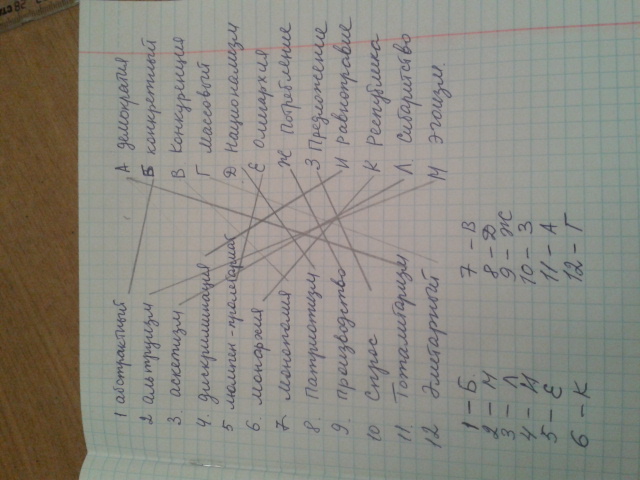 1 абстрактный А демократия
2 альтруизм Б конкретный
3. аскетизм В Конкуренция
4. дискриминация Г Массовый
5 Люмпен-пролетариат Д Национализм
6. монархия Е Олигархия
7. Монополия Ж Потребление
8. Патриотизм З Предложение
9. производство И Равноправие
10 Спрос К Республика
11. Тоталитаризм Л Сибаритство
12 Элитарный М Эгоизм.
1 – Б. 7 – В
2 – М 8 – Д
3 – Л 9 – Ж
4 – И 10 – З
5 – Е 11 – А
6 – К 12 – Г